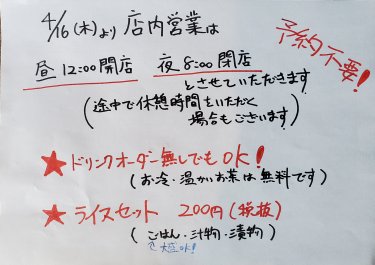 4/16(木)より 店内営業は
予約不要!
昼 12:00 開店 夜 8:00 閉店
とさせていただきます
(途中で休憩時間をいただく
場合もございます)
★ドリンクオーダー無しでもOK!
(お冷・温かいお茶は無料です)
★ライスセット 200円(税抜)
(ごはん・汁物・漬物)
大盛OK!